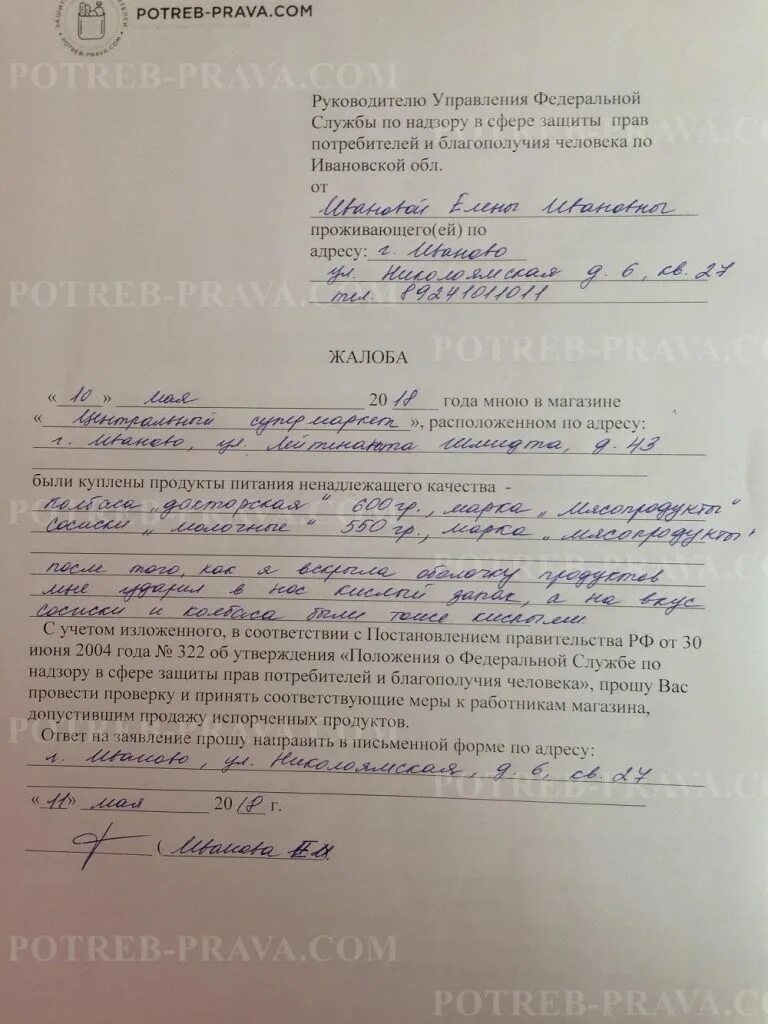 POTREB-PRAVA.COM
Руководителю Управления Федеральной
Службы по надзору в сфере защиты прав
потребителей и благополучия человека по
Ивановской обл.
от
Ивановой Елены Ивановны
проживающего(ей) по
адресу: г. Иваново
ул. Николоямская д. 6, кв. 27
тел. 89241011011
ЖАЛОБА
« 10 » мая 2018 года мною в магазине
« Центральный супермаркет », расположенном по адресу:
г. Иваново, ул. Лейтенанта Шмидта, д. 43
были куплены продукты питания ненадлежащего качества -
колбаса „докторская“ 600 гр., марка „Мясопродукты“
сосиски „молочные“ 550 гр., марка „Мясопродукты“
после того, как я вскрыла оболочку продуктов
мне ударил в нос кислый запах, а на вкус
сосиски и колбаса были тоже кислыми.
С учетом изложенного, в соответствии с Постановлением правительства РФ от 30
июня 2004 года № 322 об утверждения «Положения о Федеральной Службе по
надзору в сфере защиты прав потребителей и благополучия человека», прошу Вас
провести проверку и принять соответствующие меры к работникам магазина,
допустившим продажу испорченных продуктов.
Ответ на заявление прошу направить в письменной форме по адресу:
г. Иваново, ул. Николоямская, д. 6, кв. 27
« 11 » мая 2018 г.
( Иванова Е.И.
POTREB-PRAVA.COM
POTREB-PRAVA.COM
POTREB-PRAVA.COM
POTREB-PRAVA.COM
POTREB-PRAVA.COM
POTREB-PRAVA.COM
POTREB-PRAVA.COM
POTREB-PRAVA.COM
POTREB-PRAVA.COM
POTREB-PRAVA.COM